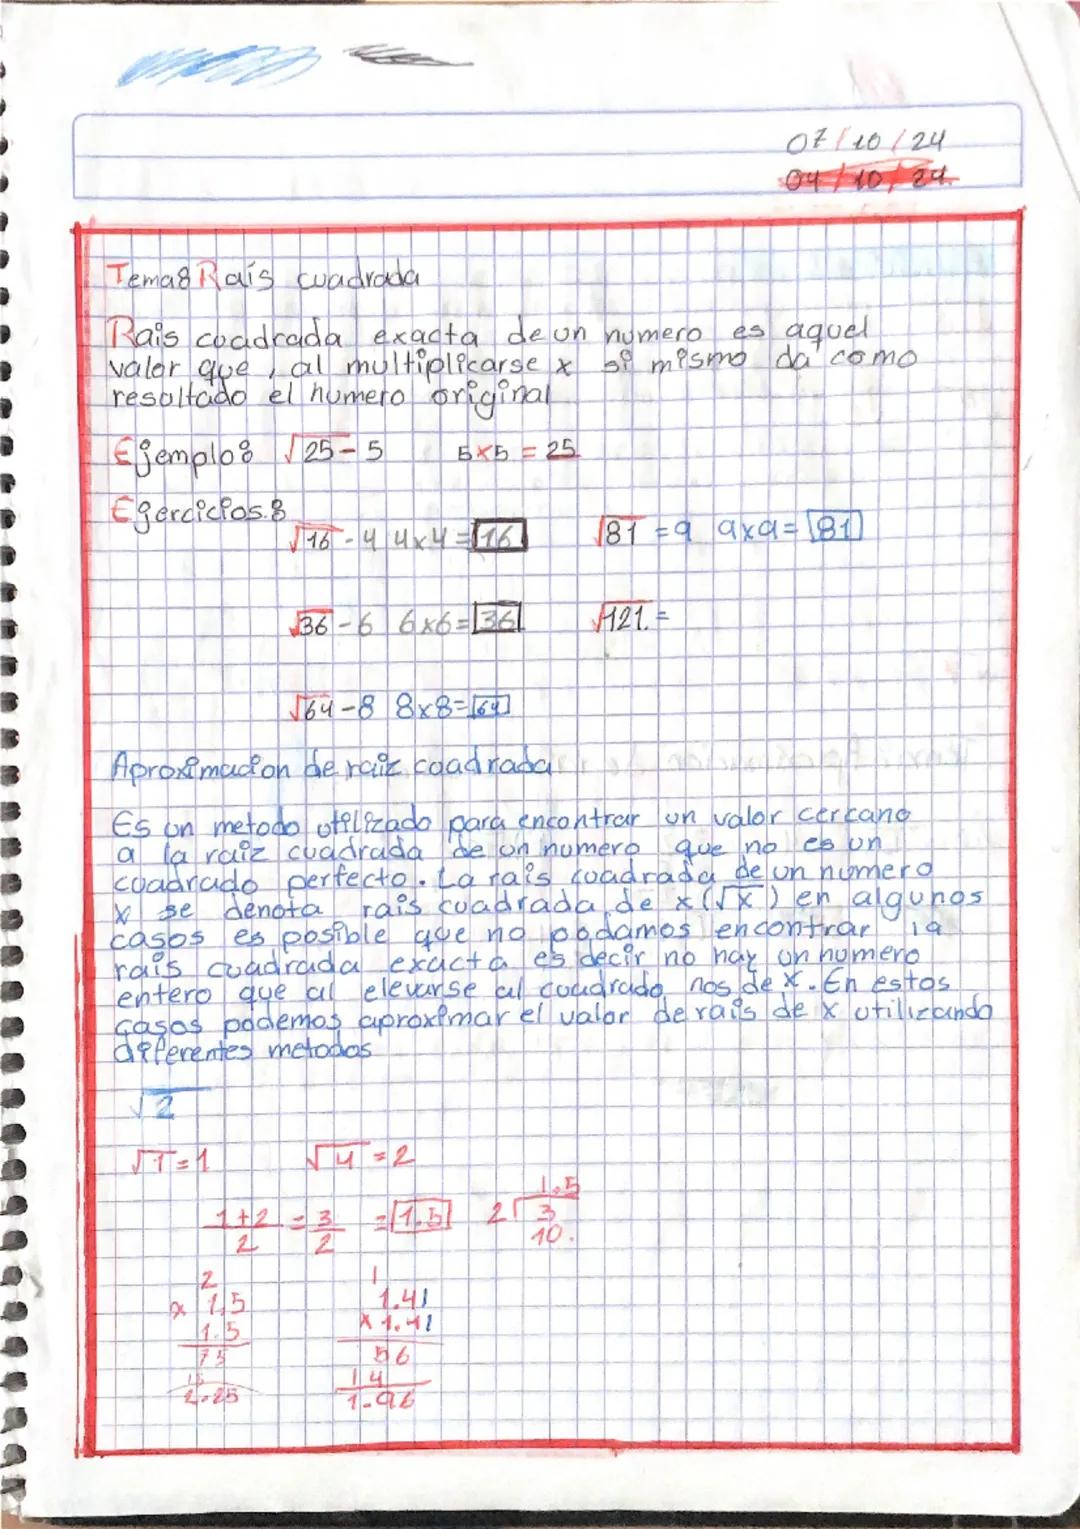 07/10/24
04/10/24.
Tema: Raís cuadrada
Rais cuadrada exacta de un numero es aquel
valor que, al multiplicarse x si mismo da como
resultado el numero original
Ejemplo: √25 - 5 5x5 = 25
Ejercicios:
√16 - 4 4x4 = 16 √81 = 9 9x9 = 81
√36 - 6 6x6 = 36 √121. =
√64 - 8 8x8 = 64
Aproximacion de raiz cuadrada
Es un metodo utilizado para encontrar un valor cercano
a la raiz cuadrada de un numero que no es un
cuadrado perfecto. La rais cuadrada de un numero
x se denota rais cuadrada de x (√x) en algunos
casos es posible que no podamos encontrar la
rais cuadrada exacta es decir no hay un numero
entero que al elevarse al cuadrado nos de x. En estos
casos podemos aproximar el valor de rais de x utilizando
diferentes metodos
√2
√1 = 1 √4 = 2
1.5
1+2 = 3 = 1.5 2 3
2 2 10.
2 1
x 1.5 1.41
1.5 x 1.41
75 56
15 14
2.25 1.96